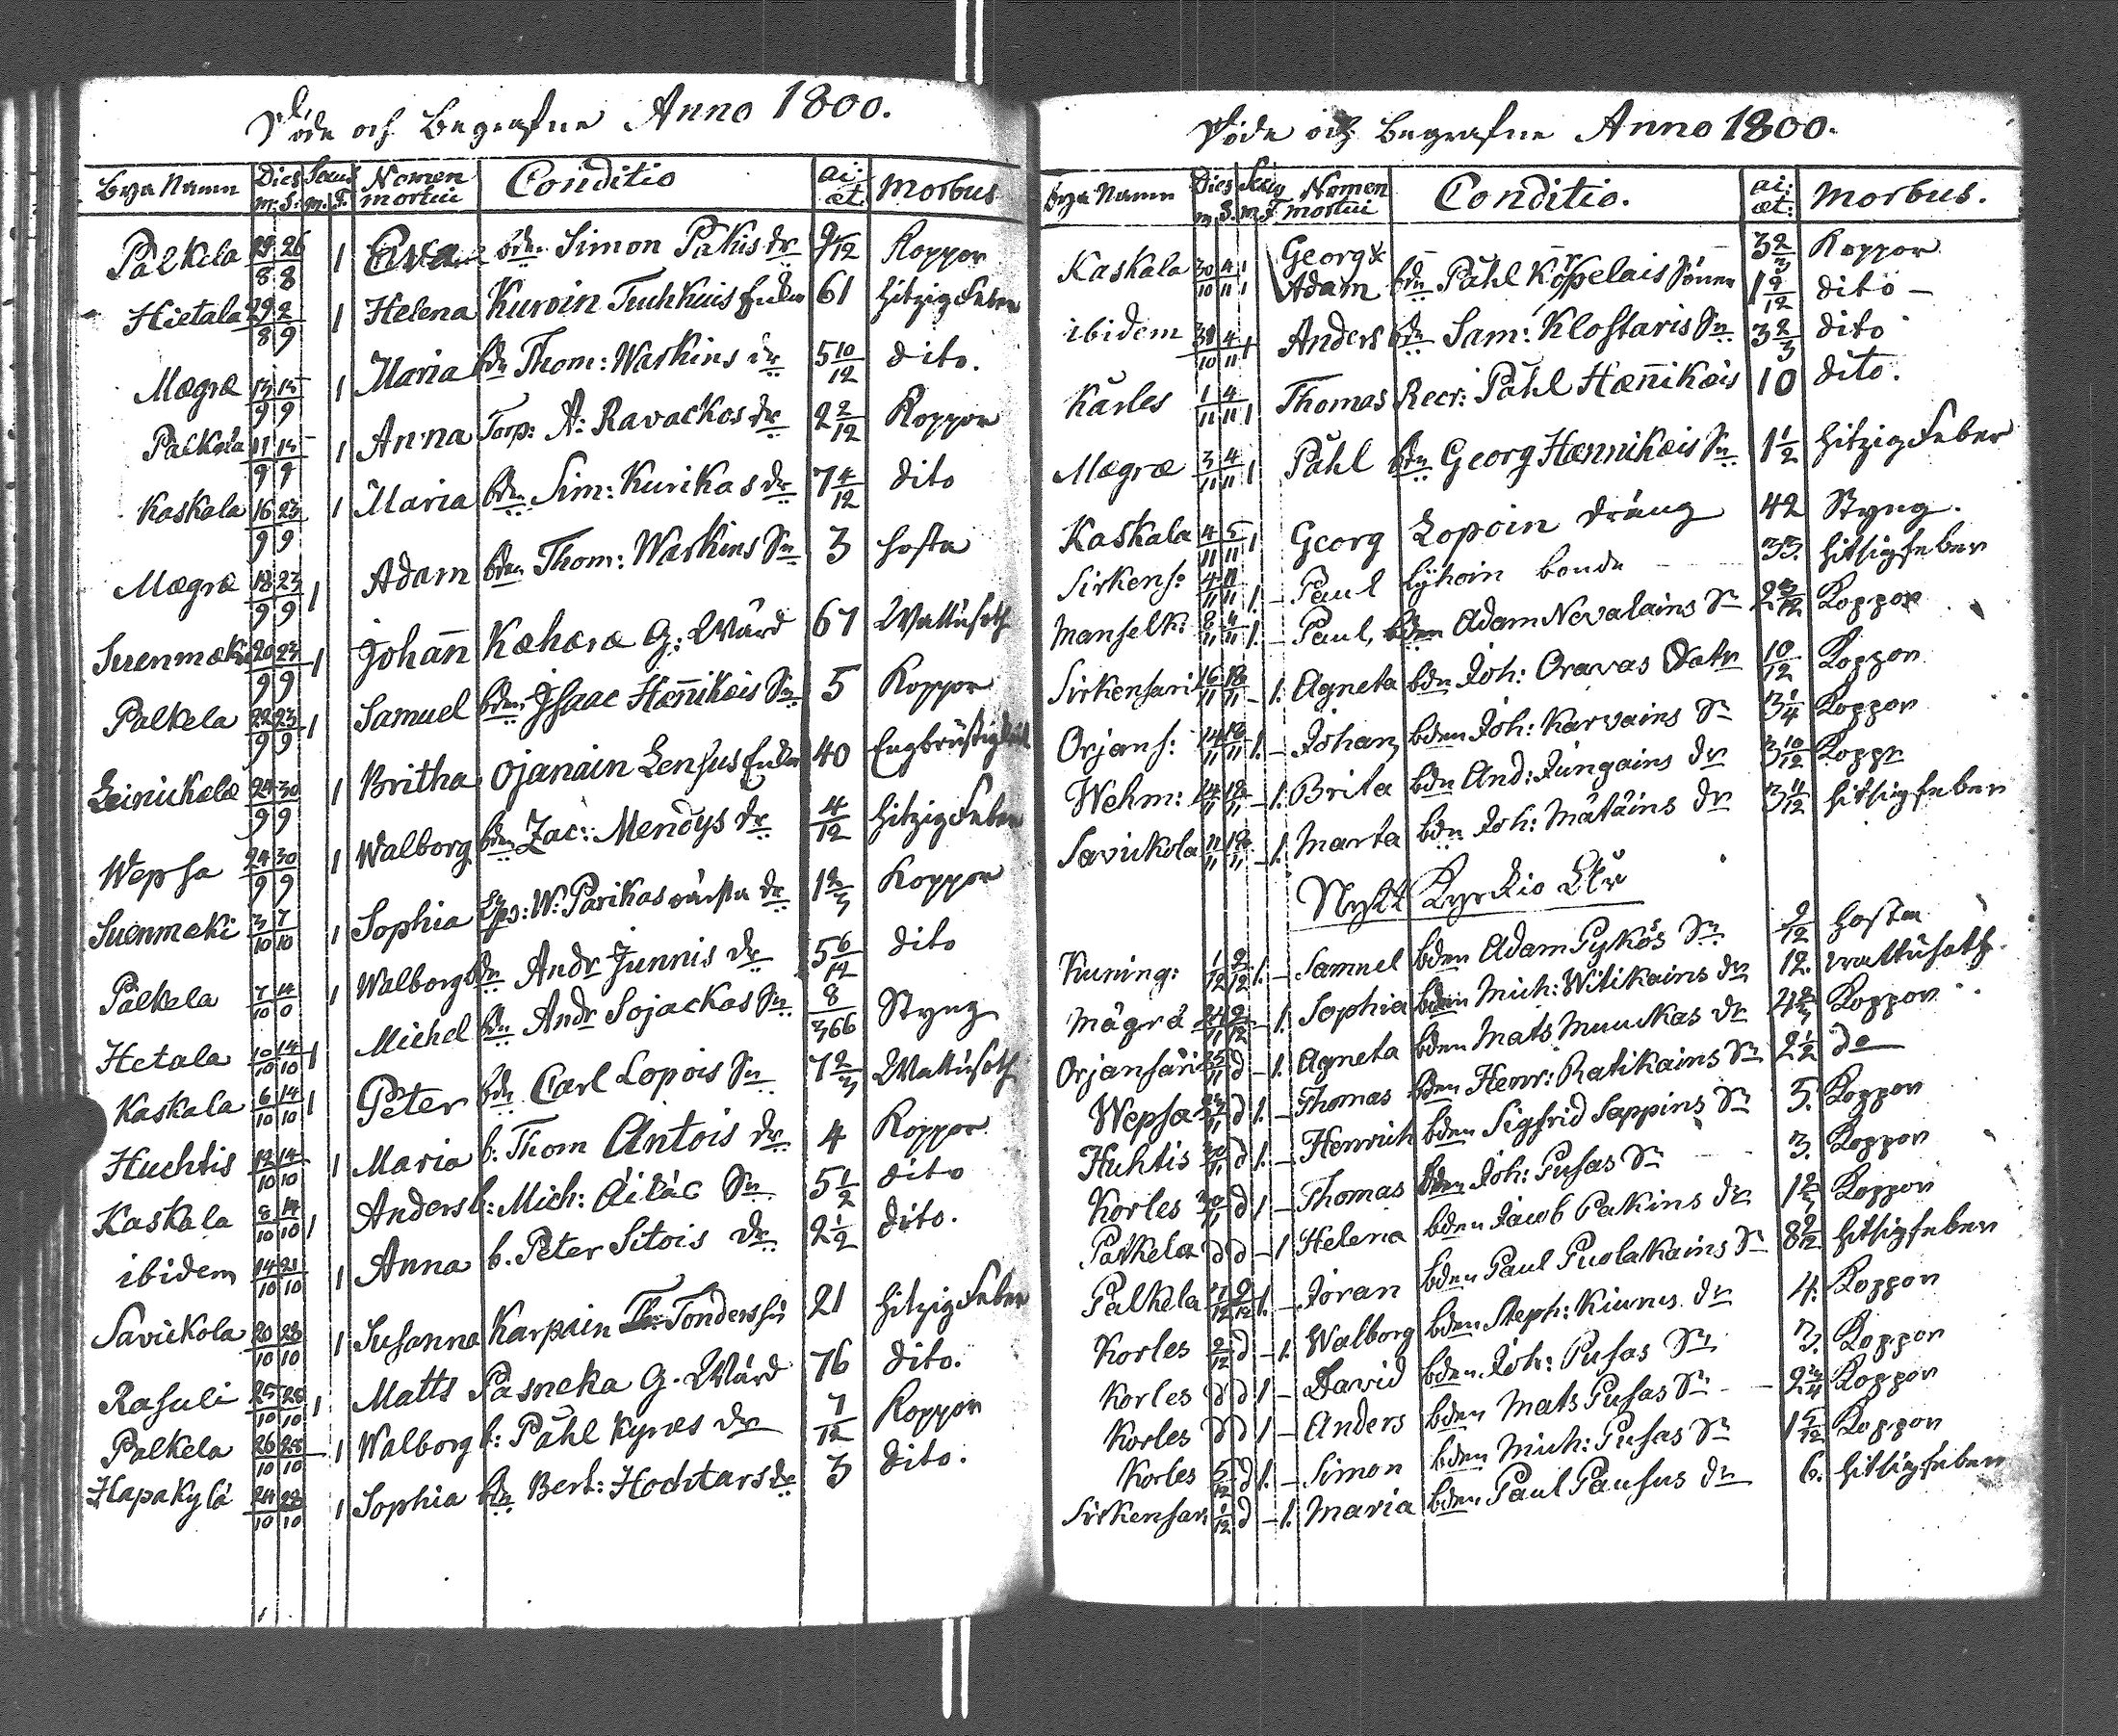 Döde och Begrafne Anno 1800.
Bya Namn Dies m. S. Sexus m. F. Nomen mortui Conditio ai: æt. Morbus
Palkela 23/8 26/8 1 Eva bdn Simon Pakis dr 9/12 Koppor
Hietala 29/8 2/9 1 Helena Kuroin Tuhkuis Enka 61 hitzig Feber
Mægræ 13/9 15/9 1 Maria bdn Thom: Waskins dr 5 10/12 dito.
Palkela 11/9 15/9 1 Anna Torp: A: Ravackos dr 2 2/12 Koppor
Kaskala 16/9 23/9 1 Maria bdn Sim: Kurikas dr 7 4/12 dito
Mægræ 18/9 23/9 1 Adam bdn Thom: Waskins Sn 3 hosta
Suenmæki 20/9 23/9 1 Johan Kæhæræ G: Wärd 67 Wattusoth
Palkela 22/9 23/9 1 Samuel bdn Isaac Hænikæis Sn 5 Koppor
Leinikælæ 24/9 30/9 1 Britha Ojanain Lensus Enka 40 Engbröstighet
Wepsa 24/9 30/9 1 Walborg bdn Zac: Mendys dr 4/12 hitzig Feber
Suenmæki 3/10 7/10 1 Sophia W: Parikas dr 1 2/3 Koppor
Palkela 7/10 14/10 1 Walborg bdn Andr Junnis dr 5 6/12 dito
Hetala 10/10 14/10 1 Michel bdn Andr Sojackas Sn 8/366 Styng
Kaskala 6/10 14/10 1 Peter bdn Carl Lopois Sn 7 2/3 Wattusoth
Huchtis 12/10 14/10 1 Maria b. Thom Antois dr 4 Koppor
Kaskala 8/10 14/10 1 Anders b: Mich: Äiläs Sn 5 1/2 dito
ibidem 14/10 21/10 1 Anna b. Peter Sitois dr 2 1/2 dito.
Savikola 20/10 23/10 1 Susanna Karpain Tonders hu 21 hitzig Feber
Rasuli 25/10 28/10 1 Matts Pasneka G. Wärd 76 dito.
Palkela 26/10 28/10 1 Walborg b: Påhl Kyræs dr 7/12 Koppor
Hapakylä 24/10 28/10 1 Sophia bdn Bert: Hochtars dr 3 dito.
Döde och Begrafne Anno 1800.
Bya Namn Dies m. S. Sexus m. F. Nomen mortui Conditio. ai: æt: Morbus.
Kaskala 30/10 4/11 1 1 Georg & 3 2/3 Koppor
Adam bdn Påhl Korpelais Söner 1 9/12 dito
ibidem 30/10 4/11 1 Anders bdn Sam: Klostaris Sn 3 2/3 dito
Kårles 1/11 4/11 1 Thomas Recr: Påhl Hænikæis 10 dito.
Mægræ 3/11 4/11 1 Påhl bdn Georg Hænnikæis Sn 1 1/2 hitzig Feber
Kaskala 4/11 5/11 1 Georg Lopoin dräng 42 Styng.
Sirkens: 4/11 11/11 1. Paul Lyhoin bonde 33. hitsigfeber
Manselk: 8/11 11/11 1. Paul, bden Adam Nevalains Sn Koppor
Sirkensari 16/11 18/11 1. Agneta bdn Joh: Oravas Dotr 10/12 Koppor
Orjans: 14/11 18/11 1. Johan bden Joh: Karvains Sn 3 1/4 Koppor
Wehm: 14/11 18/11 1. Brita bdn And: Jungains dr 3 10/12 Koppr
Savickola 11/11 18/11 1. Marta bdn Joh: Mätäins dr 3 11/12 hitsigfeber
Nytt Kyrkio Åhr
Kuning: 1/12 2/12 1. Samuel bden Adam Pykös Sn 9/12 hosten
Mägrä 24/11 2/12 1. Sophia bden Mich: Witikains dr 12. wattusoth.
Orjansari 25/11 d 1. Agneta bden Mats Muuckas dr Koppor
Wepsa d 1. Thomas bden Henr: Ratikains Sn 2 1/2 do
Huhtis d 1. Henrich bden Sigfrid Seppins Sn 5. Koppor
Korles d 1 Thomas bden Joh: Pusas Sn 3. Koppor
Palkela d d 1 Helena bden Jacob Pakins dr Koppor
Palkela 1/12 2/12 1. Jöran bden Paul Puolakains Sn 8 2/12 hitsigfeber
Korles 2/12 d 1. Walborg bden Steph: Kiurus dr 4. Koppor
Korles d d 1 David bden Joh: Pusas Sn 3. Koppor
Korles d d 1 Anders bden Mats Pusas Sn 2 3/4 Koppor
Korles 5/12 d 1. Simon bden Mich: Pusas Sn 1 5/12 Koppor
Sirkensari 1/12 d 1. Maria bden Paul Pausus dr 6. hitsigfeber